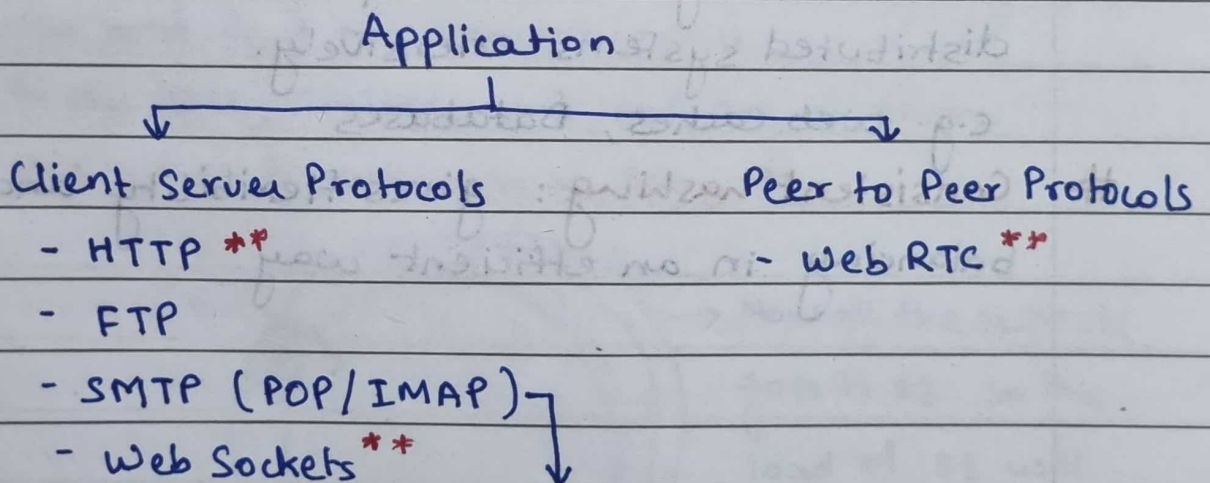 Application
Client Server Protocols
- HTTP **
- FTP
- SMTP (POP/IMAP)
- Web Sockets **
Peer to Peer Protocols
- Web RTC **